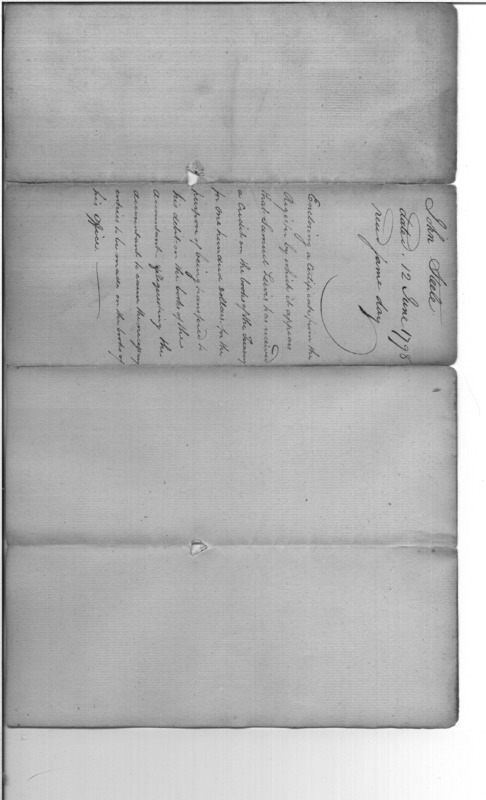 John Steele
dated. 12 June 1798
recd same day
Enclosing a certificate from the
Register by which it appears
that Samuel Lewis has received
a Credit on the books of the Treasury
for one hundred dollars, for the
purpose of being transferred to
his debit on the books of the
accountant & requesting the
accountant to cause the necessary
entries to be made on the books of
his Office.